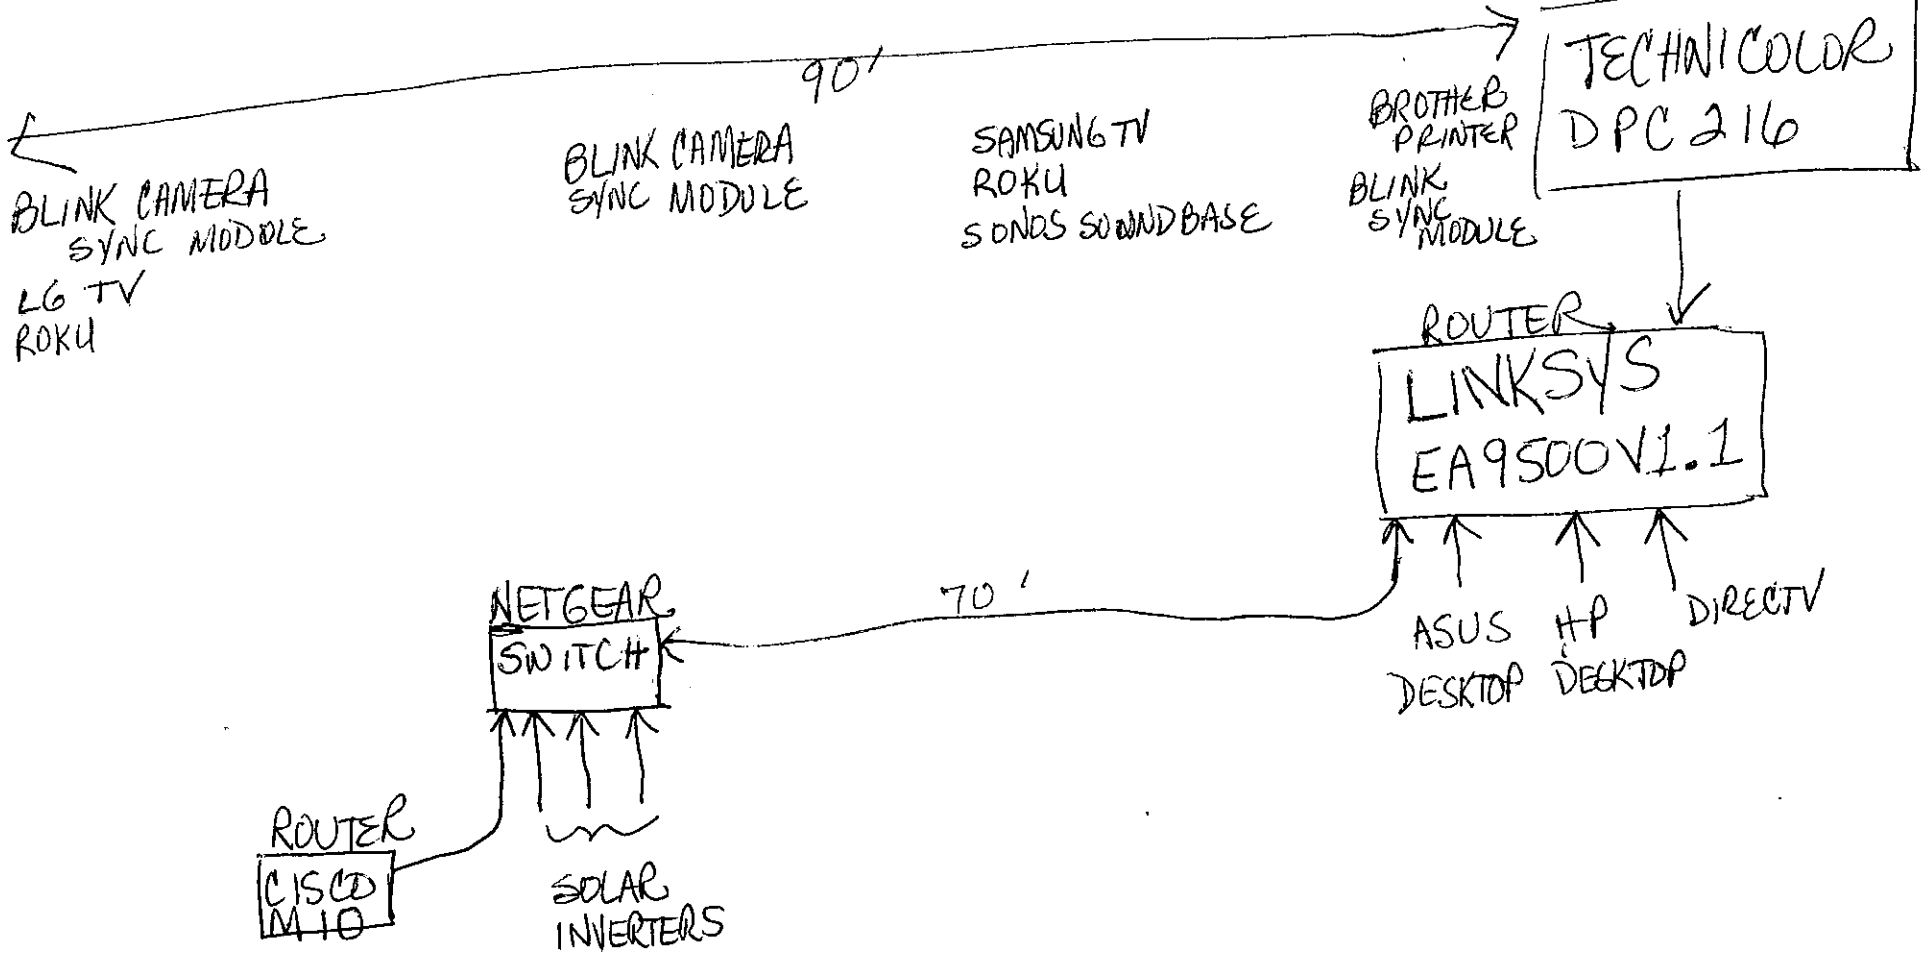 90'
TECHNICOLOR
DPC 216
BLINK CAMERA
SYNC MODULE
LG TV
ROKU
BLINK CAMERA
SYNC MODULE
SAMSUNG TV
ROKU
SONOS SOUNDBASE
BROTHER
PRINTER
BLINK
SYNC
MODULE
ROUTER
LINKSYS
EA9500V1.1
ASUS
DESKTOP
HP
DESKTOP
DIRECTV
70'
NETGEAR
SWITCH
ROUTER
CISCO
M10
SOLAR
INVERTERS